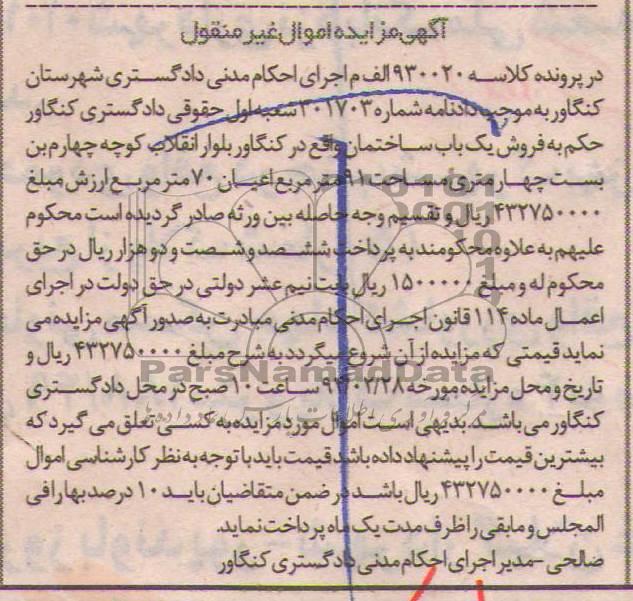 آگهی مزایده اموال غیر منقول
در پرونده کلاسه ۹۳۰۰۲۰ الف م اجرای احکام مدنی دادگستری شهرستان
کنگاور به موجب دادنامه شماره ۳۰۱۷۰۳ شعبه اول حقوقی دادگستری کنگاور
حکم به فروش یک باب ساختمان واقع در کنگاور بلوار انقلاب کوچه چهارم بن
بست چهار متری مساحت ۹۱ متر مربع اعیان ۷۰ متر مربع ارزش مبلغ
۴۳۲۷۵۰۰۰۰ ریال و تقسیم وجه حاصله بین ورثه صادر گردیده است محکوم
علیهم به علاوه محکومند به پرداخت ششصد و شصت و دو هزار ریال در حق
محکوم له و مبلغ ۱۵۰۰۰۰۰ ریال بابت نیم عشر دولتی در حق دولت در اجرای
اعمال ماده ۱۱۴ قانون اجرای احکام مدنی مبادرت به صدور آگهی مزایده می
نماید قیمتی که مزایده از آن شروع میگردد به شرح مبلغ ۴۳۲۷۵۰۰۰۰ ریال و
ParsNamadData
تاریخ و محل مزایده مورخه ۹۴/۰۲/۲۸ ساعت ۱۰ صبح در محل دادگستری
کنگاور می باشد. بدیهی است اموال مورد مزایده به کسی تعلق می گیرد که
بیشترین قیمت را پیشنهاد داده باشد قیمت باید با توجه به نظر کارشناسی اموال
مبلغ ۴۳۲۷۵۰۰۰۰ ریال باشد در ضمن متقاضیان باید ۱۰ درصد بها را فی
المجلس و مابقی را ظرف مدت یک ماه پرداخت نماید.
صالحی -مدیر اجرای احکام مدنی دادگستری کنگاور.